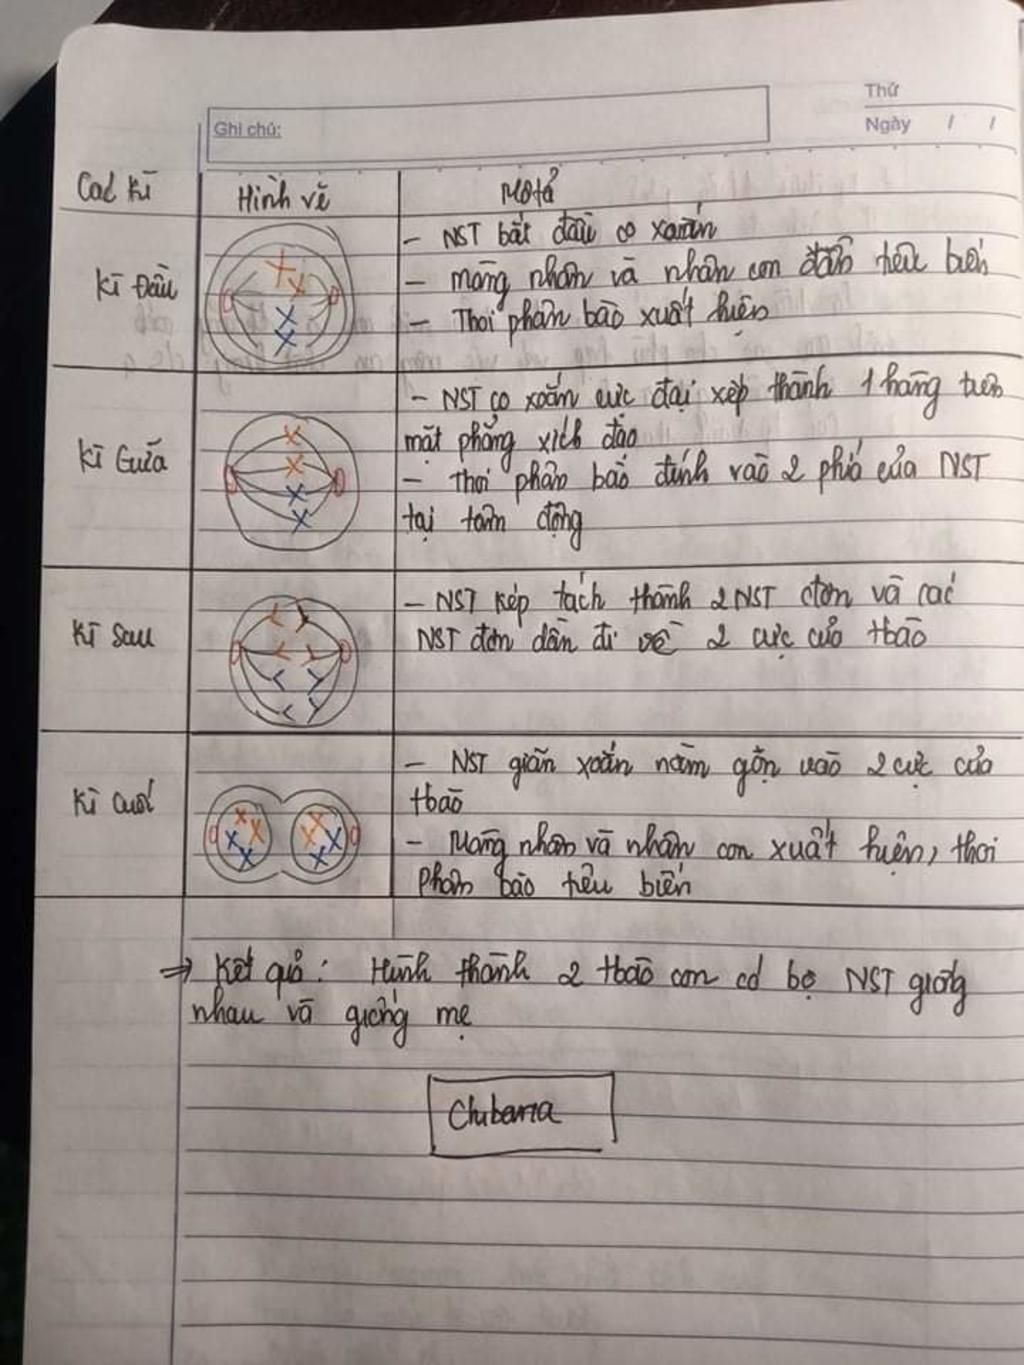 Thứ
Ghi chú:
Ngày / /
Các kì
Hình vẽ
Mô tả
Kì Đầu
- NST bắt đầu co xoắn
- màng nhân và nhân con dần tiêu biến
- Thoi phân bào xuất hiện
Kì Giữa
- NST co xoắn cực đại xếp thành 1 hàng trên
mặt phẳng xích đạo
- Thoi phân bào đính vào 2 phía của NST
tại tâm động
Kì Sau
- NST kép tách thành 2 NST đơn và các
NST đơn dần đi về 2 cực của tbào
Kì Cuối
- NST giãn xoắn nằm gọn vào 2 cực của
tbào
- Màng nhân và nhân con xuất hiện, thoi
phân bào tiêu biến
⇒ Kết quả: Hình thành 2 tbào con có bộ NST giống
nhau và giống mẹ